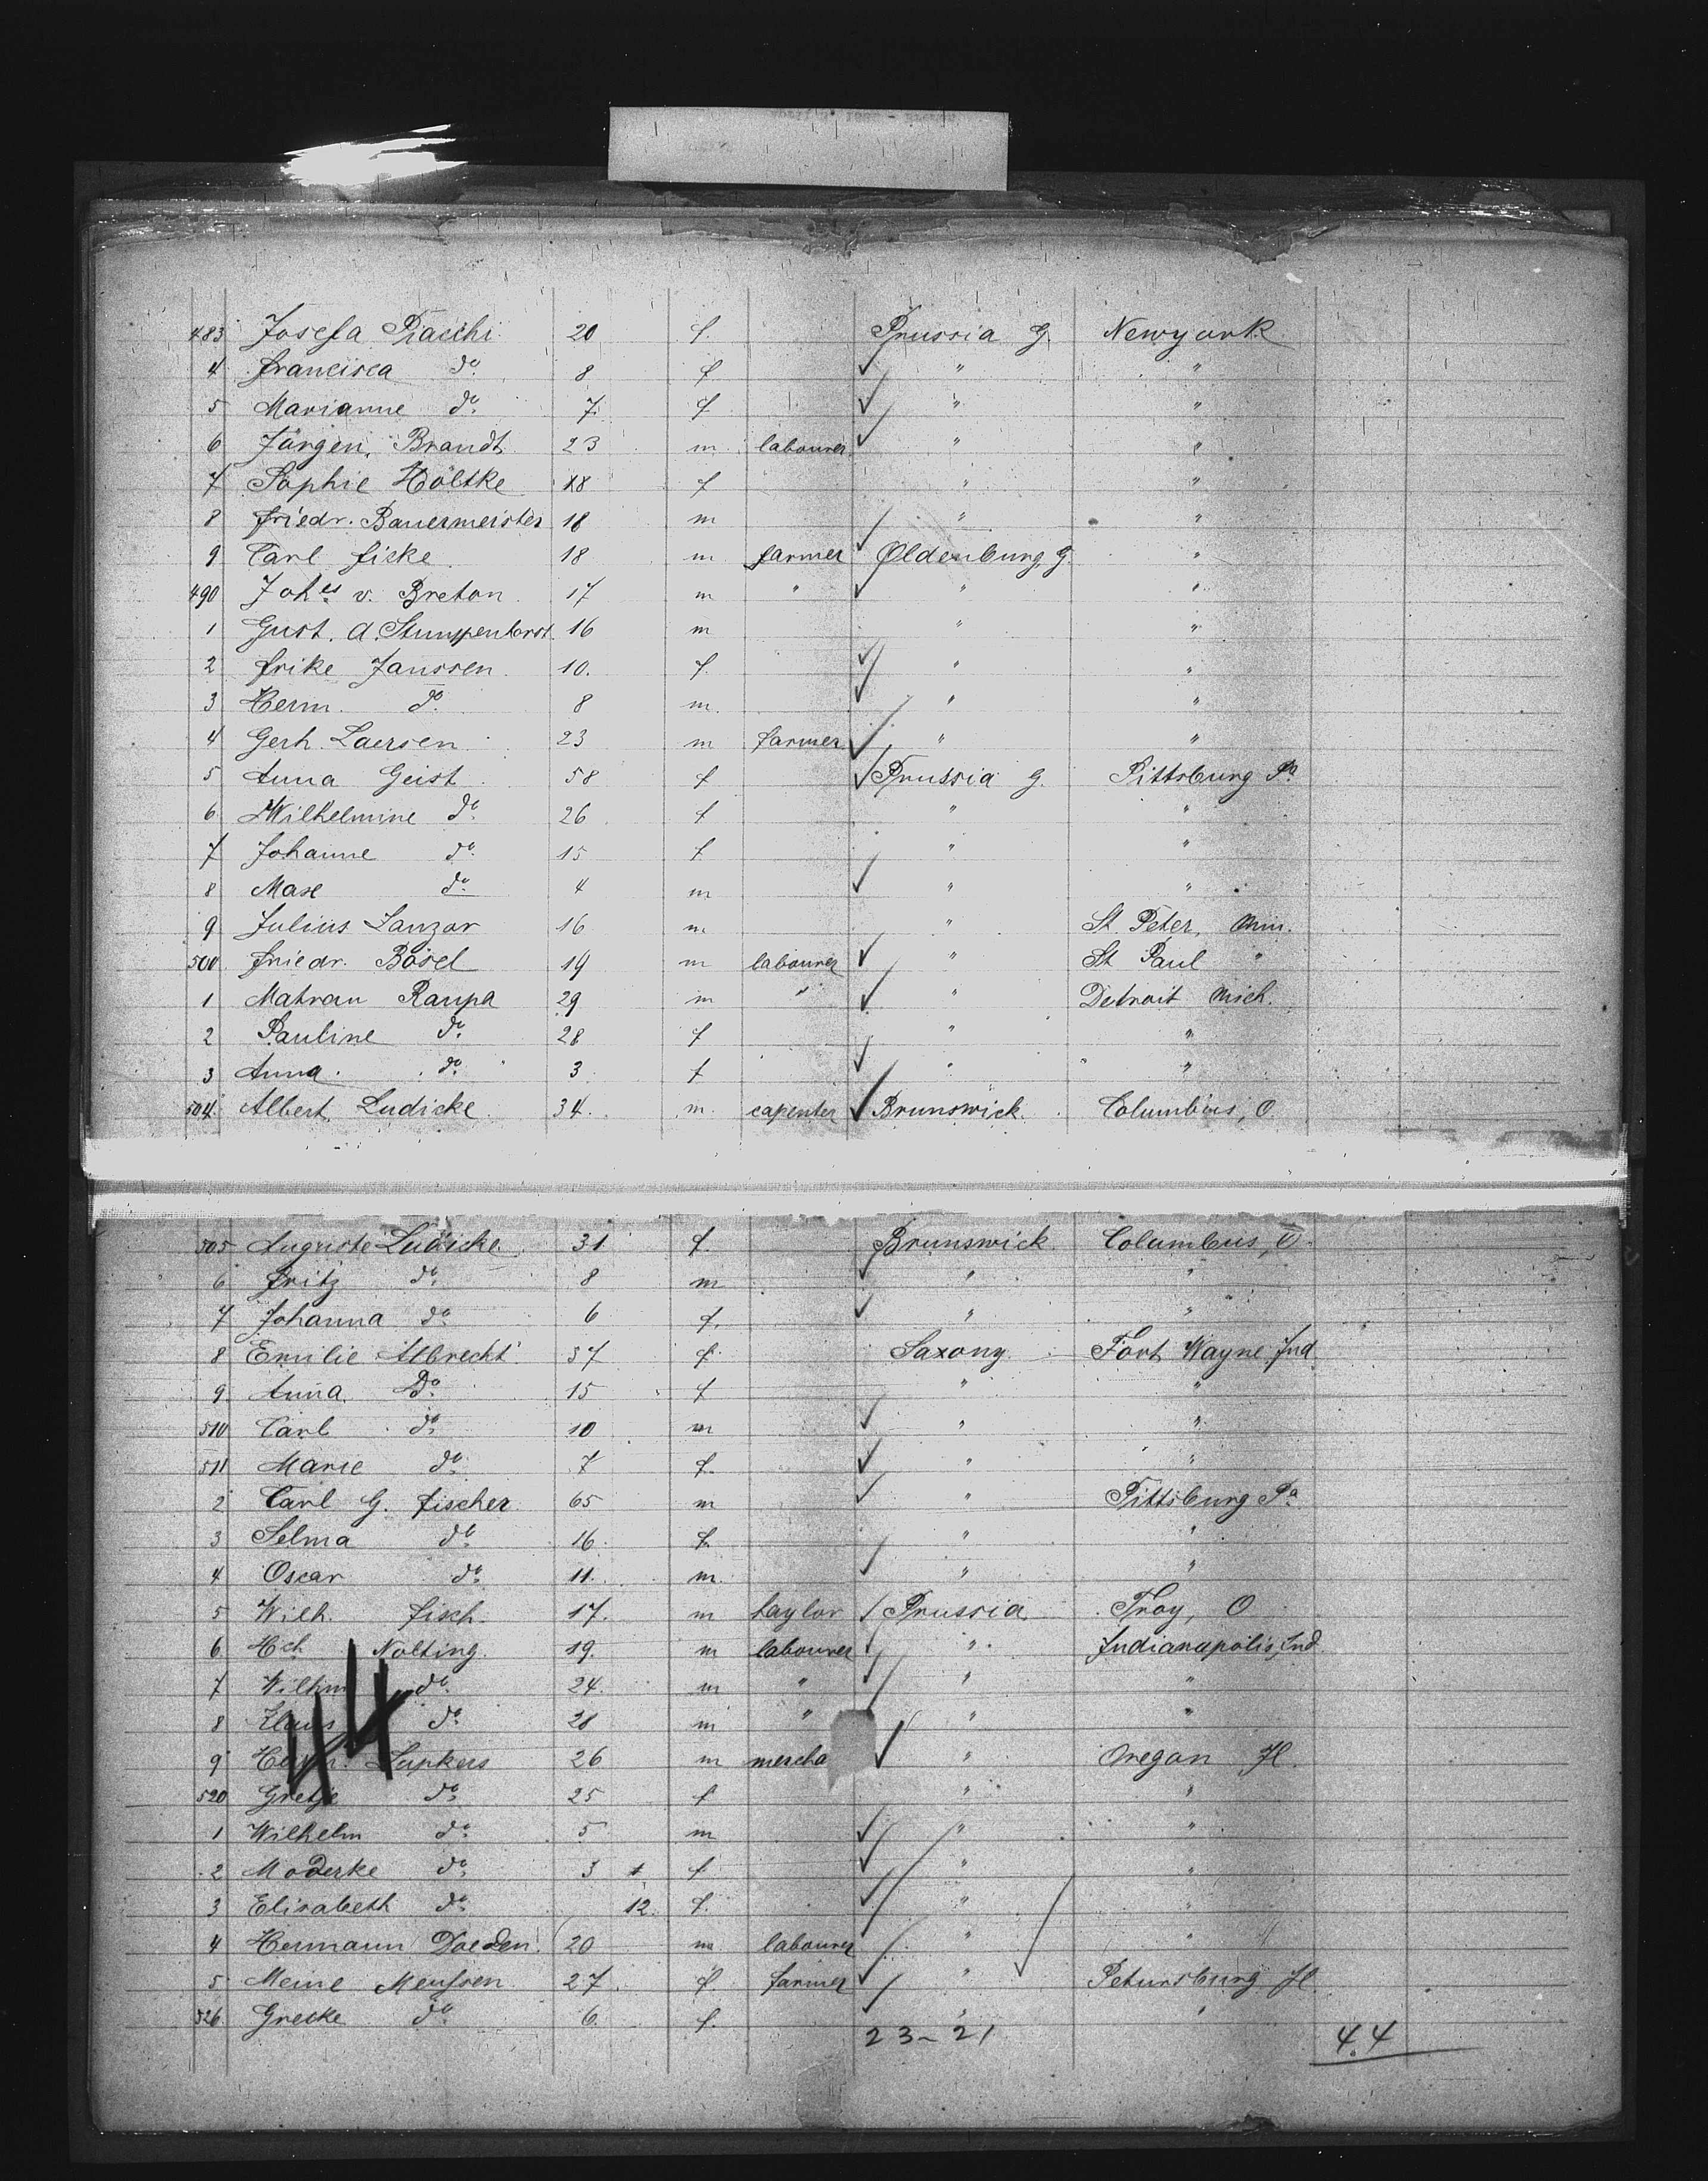 483 Josefa Piacchi 20 f. Prussia G. Newyork
4 Francisca do. 8 f. " "
5 Marianne do. 7. f " "
6 Jürgen Brandt 23 m labourer " "
7 Sophie Höltke 18 f " "
8 Friedr. Bauermeister 18 m " "
9 Carl Ficke 18 m farmer Oldenburg, G. "
490 Johes v. Breton 17 m " " "
1 Gust. A. Stumpenhorst 16 m " "
2 Frike Janssen 10. f. " "
3 Herm. do. 8 m. " "
4 Gerh. Laersen 23 m farmer " "
5 Anna Geist 58 f Prussia G. Pittsburg Pa
6 Wilhelmine do. 26 f " "
7 Johanne do. 15 f " "
8 Max do. 4 m " "
9 Julius Lanzar 16 m " St. Peter, Min.
500 Friedr. Bösel 19 m labourer " St Paul "
1 Matran Raupa 29 m " " Detroit Mich.
2 Pauline do. 28 f " "
3 Anna do. 3 f " "
504. Albert Ludicke 34. m. capenter Brunswick. Columbus, O
505 Auguste Ludicke 31 f. Brunswick Columbus, O.
6 Fritz do. 8 m " "
7 Johanna do. 6 f. " "
8 Emilie Albrecht 37 f. Saxony Fort Wayne Ind
9 Anna Do. 15 f " "
510 Carl do. 10 m " "
511 Marie do. 7 f. " "
2 Carl G. Fischer 65 m " Pittsburg Pa
3 Selma do. 16. f. " "
4 Oscar do. 11. m. " "
5 Wilh. Fisch. 17. m taylor Prussia Troy, O
6 Hch Nolting 19. m labourer " Indianapolis, Ind.
7 Wilhm do. 24. m " " "
8 Klaus do. 28 m " " "
9 Herm. Lupkers 26 m mercha " Oregon Il.
520 Gretje do. 25 f " "
1 Wilhelm do. 5 m " "
2 Moderke do. 3 f " "
3 Elisabeth do. 12. f. " "
4 Hermann Doeden 20 m labourer " "
5 Meine Meussen 27. f. farmer " Petersburg Il.
526. Grecke do. 6. f. " "
23-21 44
44